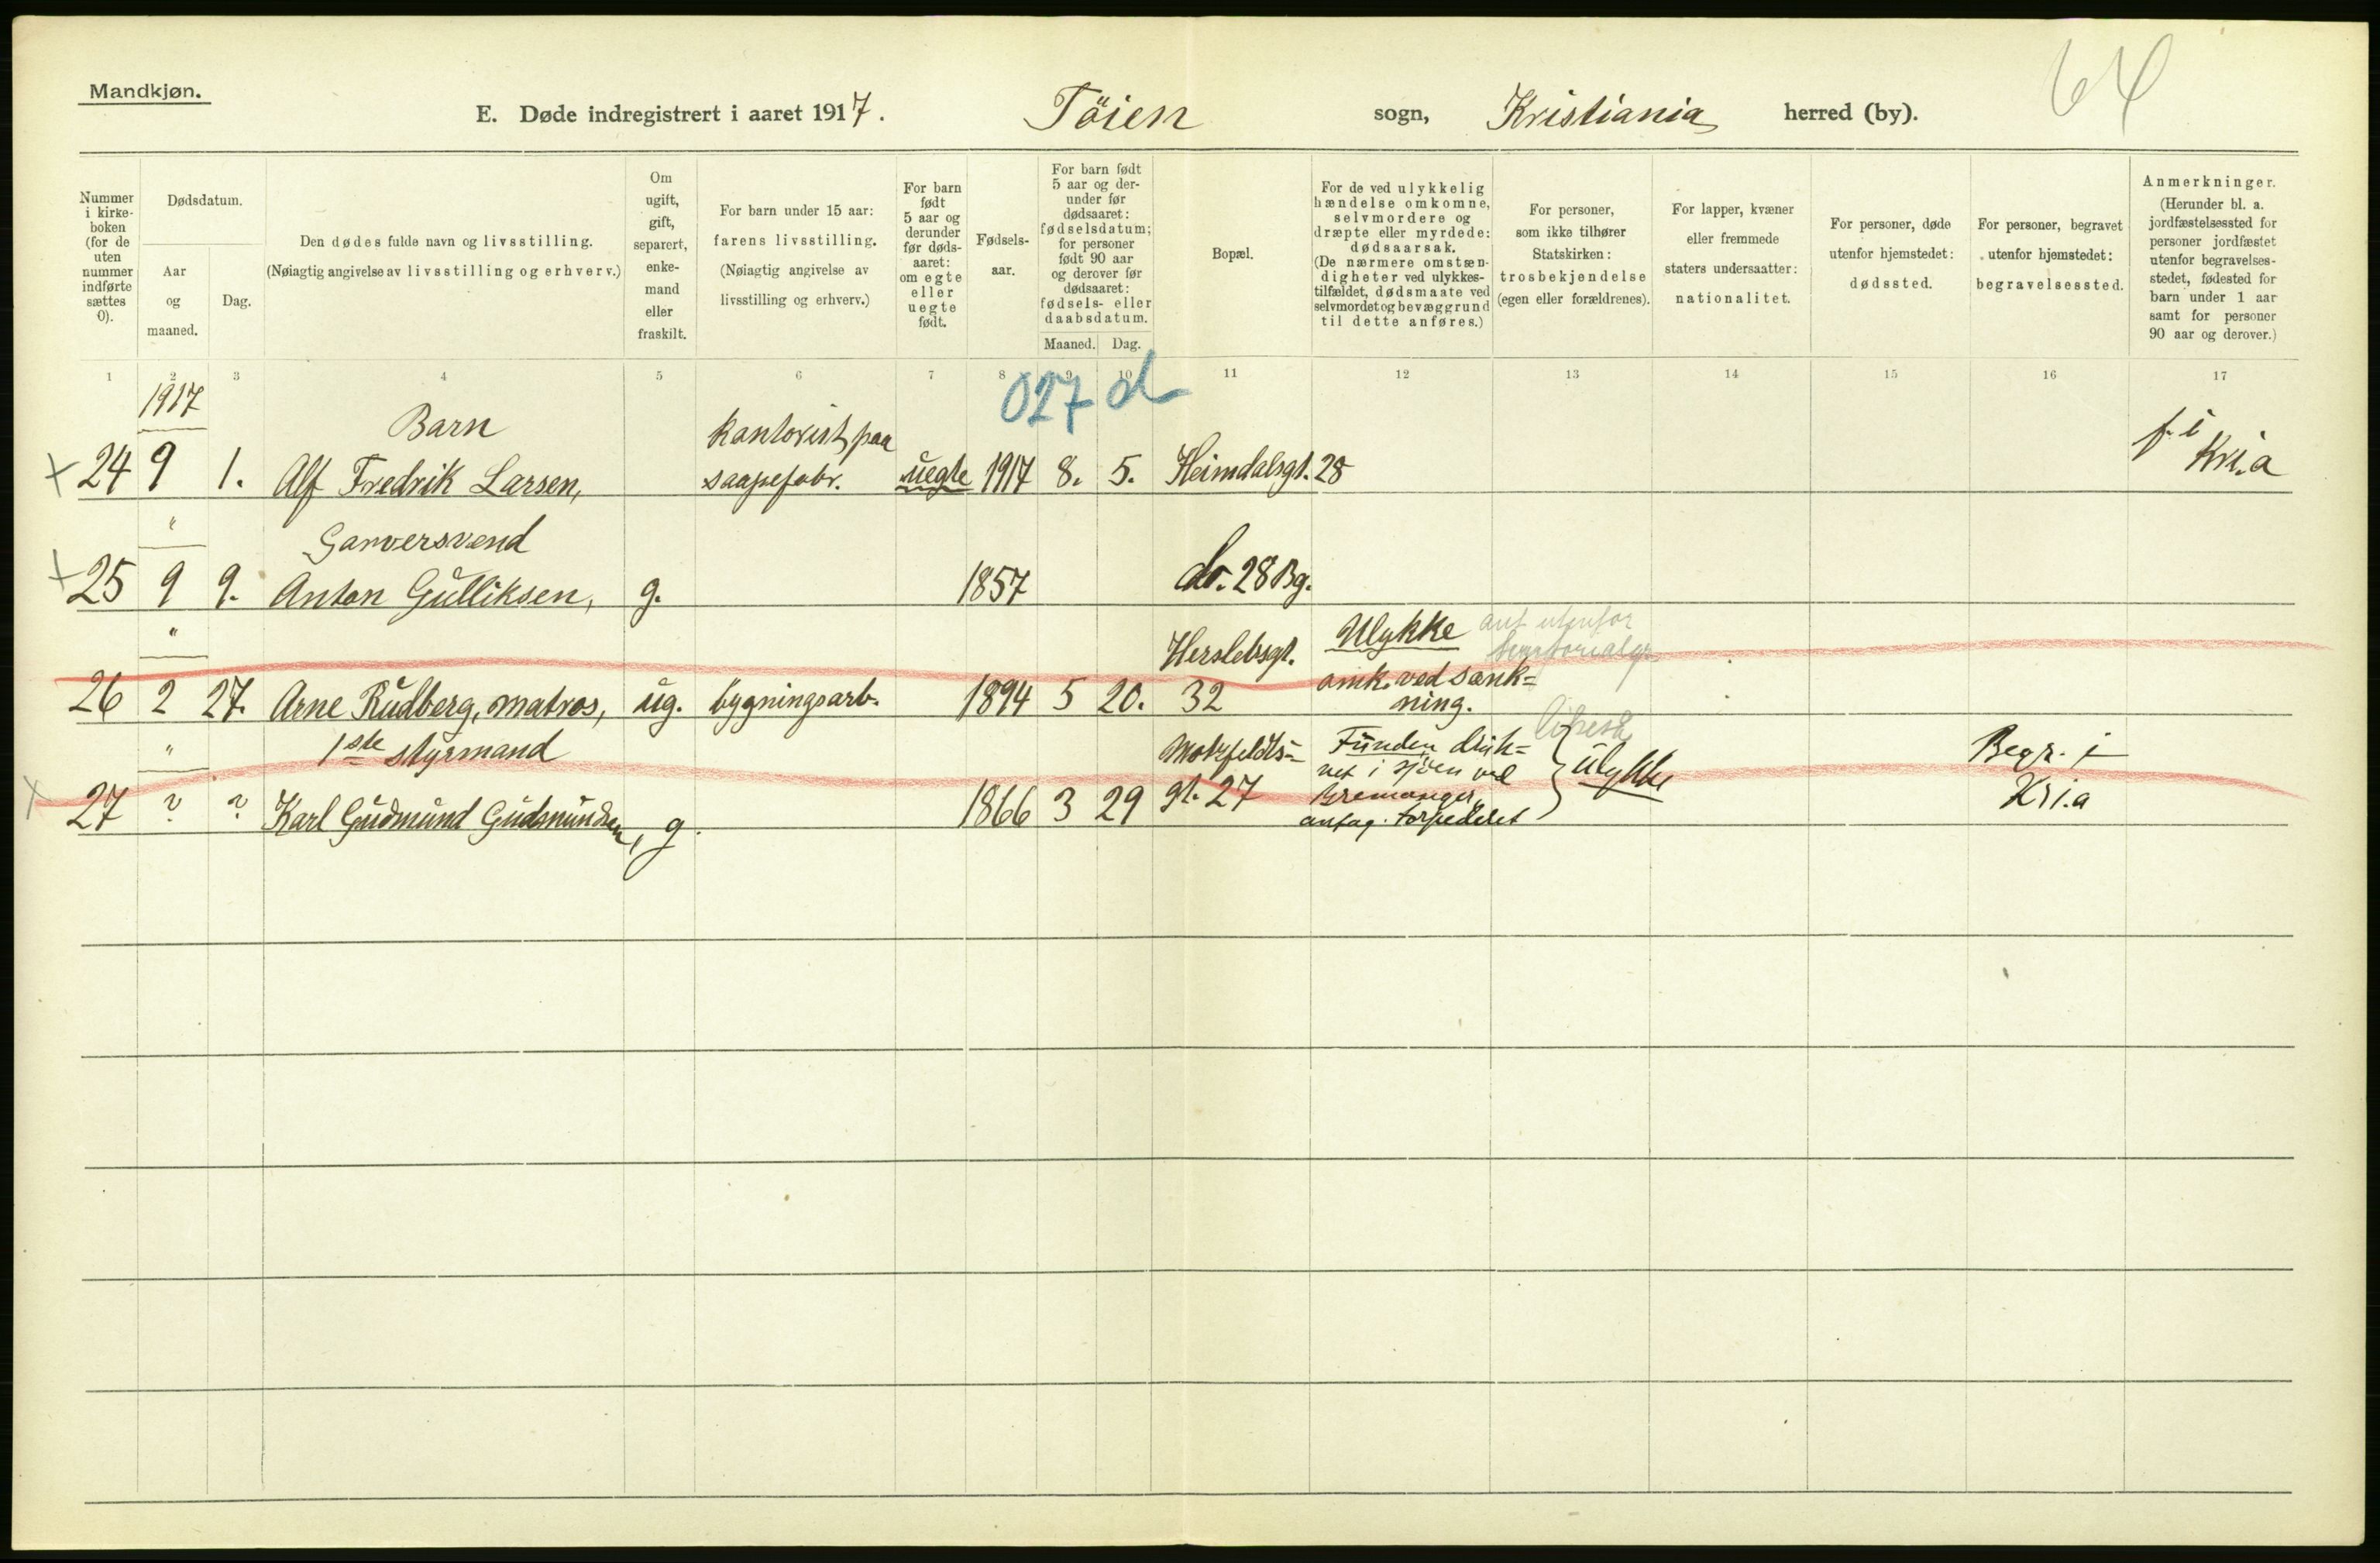 Mandkjøn.
64
E. Døde indregistrert i aaret 1917. Töien sogn, Kristiania herred (by).
Nummer i kirke-boken (for de uten nummer indførte sættes 0).
Dødsdatum.
Aar og maaned.
Dag.
Den dødes fulde navn og livsstilling.
(Nøiagtig angivelse av livsstilling og erhverv.)
Om ugift, gift, separert, enke-mand eller fraskilt.
For barn under 15 aar:
farens livsstilling.
(Nøiagtig angivelse av livsstilling og erhverv.)
For barn født 5 aar og derunder før døds-aaret: om egte eller uegte født.
Fødsels-aar.
For barn født 5 aar og der-under før dødsaaret: fødselsdatum; for personer født 90 aar og derover før dødsaaret: fødsels- eller daabsdatum.
Maaned.
Dag.
Bopæl.
For de ved ulykkelig hændelse omkomne, selvmordere og dræpte eller myrdede: dødsaarsak.
(De nærmere omstæn-digheter ved ulykkes-tilfældet, dødsmaate ved selvmordet og bevæggrund til dette anføres.)
For personer, som ikke tilhører Statskirken: trosbekjendelse (egen eller forældrenes).
For lapper, kvæner eller fremmede staters undersaatter: nationalitet.
For personer, døde utenfor hjemstedet: dødssted.
For personer, begravet utenfor hjemstedet: begravelsessted.
Anmerkninger.
(Herunder bl. a. jordfæstelsessted for personer jordfæstet utenfor begravelses-stedet, fødested for barn under 1 aar samt for personer 90 aar og derover.)
1 2 3 4 5 6 7 8 9 10 11 12 13 14 15 16 17
027 d
1917 Barn kontorist paa f. i
24 9 1. Alf Fredrik Larsen, saapefabr. uegte 1917 8. 5. Heimdalsgt. 28 Kri.a
" Garversvend
25 9 9. Anton Gulliksen, g. 1857 do. 28 Bg.
" Herslebsgt. Ulykke ant utenfor
26 2 27. Arne Rudberg, matros, ug. bygningsarb. 1894 5 20. 32 omk. ved sænk=
ning.
" 1ste styrmand Motzfeldts= Funden druk= Begr. i
net i sjöen ved Ulykke
27 ? ? Karl Gudmund Gudmundsen, g. 1866 3 29 gt. 27 Bremanger, Kri.a
antag. torpederet